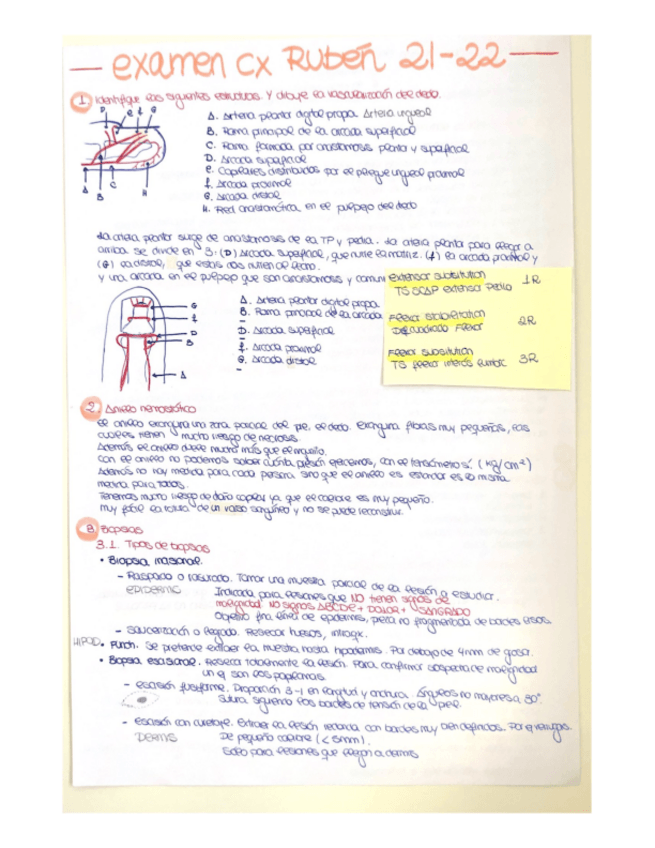 examen cx Rubén 21-22
1. Identifique las siguientes estructuras. Y dibuje la vascularización del dedo.
D e f G
A B C H
A. Arteria plantar digital propia. Arteria ungueal
B. Rama principal de la arcada superficial
C. Rama formada por anastomosis plantar y superficial
D. Arcada superficial
e. Capilares distribuidos por el pliegue ungueal proximal
f. Arcada proximal
G. Arcada distal
H. Red anastomótica en el pulpejo del dedo
La arteria plantar surge de anastomosis de la TP y pedia. La arteria plantar para llegar a
arriba se divide en 3: (D) Arcada superficial, que nutre la matriz. (f) la arcada proximal y
(G) la distal, que estas dos nutren al lecho.
y una arcada en el pulpejo que son anastomosis y comuni
extensor substitution 1R
TS SCAP extensor Pedio
Flexor stabilization 2R
Dº cuadrado Flexor
Flexor substitution 3R
TS flexor interós lumbric
G
f
D
B
A
A. Arteria plantar digital propia
B. Rama principal de la arcada
D. Arcada superficial
f. Arcada proximal
G. Arcada distal
2. Anillo hemostático
el anillo exanguina una zona parcial del pie, el dedo. Exanguina fibras muy pequeñas, las
cuales tienen mucho riesgo de necrosis.
Además el anillo duele mucho más que el manguito.
Con el anillo no podemos saber cuánta presión ejercemos, con el tensiómetro sí. (kg/cm²)
Además no hay medida para cada persona sino que el anillo es estándar es la misma
medida para todos.
Tenemos mucho riesgo de daño capilar ya que el calibre es muy pequeño.
Muy fácil la rotura de un vaso sanguíneo y no se puede reconstruir.
3. Biopsias
3.1. Tipos de biopsias
• Biopsia incisional.
- Raspado o rasurado. Tomar una muestra parcial de la lesión a estudiar.
EPIDERMIS Indicada para lesiones que NO tienen signos de
malignidad. NO signos ABCDE + DOLOR + SANGRADO
Objetivo fina línea de epidermis, pieza no fragmentada de bordes lisos.
- Saucerización o afeitado.
HIPOD. • Punch. Se pretende extraer la muestra hasta hipodermis. Por debajo de 4mm de grosor.
• Biopsia escisional. Reseca totalmente la lesión. Para confirmar sospecha de malignidad
un ej son los papilomas.
- escisión fusiforme. Proporción 3-1 en longitud y anchura. Ángulos no mayores a 30º.
Sutura siguiendo los bordes de tensión de la piel.
- escisión con curetaje. Extraer la lesión redonda con bordes muy bien definidos. Por ej verrugas.
DERMIS De pequeño calibre (< 5mm).
Solo para lesiones que llegan a dermis